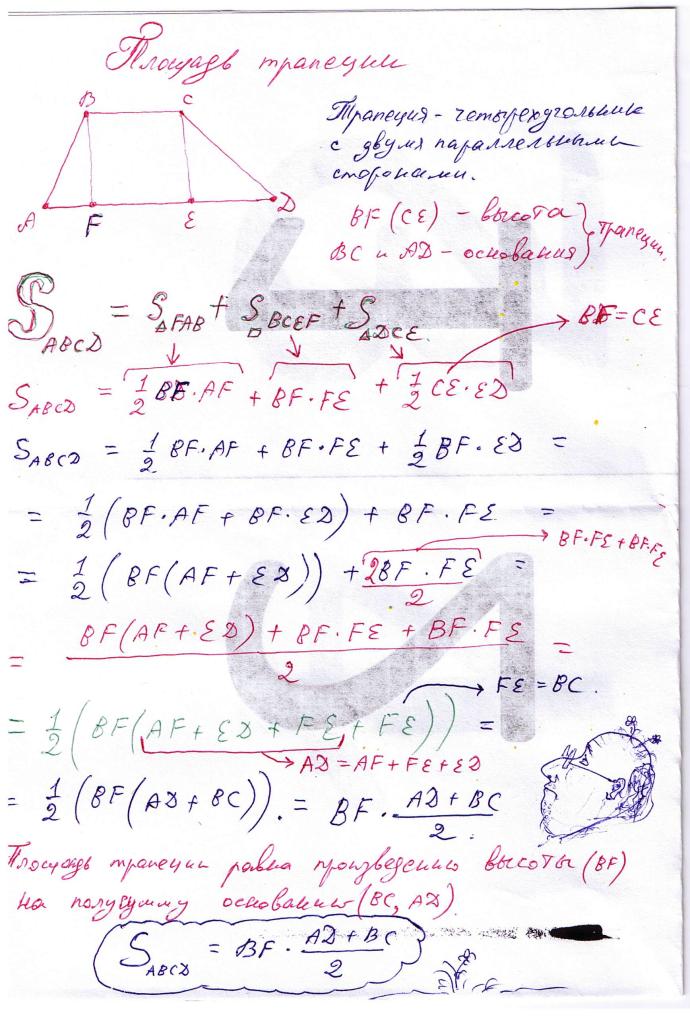 Площадь трапеции
B C
A F E D
Трапеция - четырехугольник
с двумя параллельными
сторонами.
BF (CE) - высота
BC и AD - основания } трапеции.
S ABCD = S △FAB + S □BCEF + S △DCE.
BF = CE
S ABCD = 1/2 BF·AF + BF·FE + 1/2 CE·ED
S ABCD = 1/2 BF·AF + BF·FE + 1/2 BF·ED =
= 1/2 (BF·AF + BF·ED) + BF·FE =
BF·FE + BF·FE
= 1/2 (BF(AF + ED)) + 2BF·FE/2 =
= BF(AF + ED) + BF·FE + BF·FE / 2 =
FE = BC.
= 1/2 (BF(AF + ED + FE + FE)) =
AD = AF + FE + ED
= 1/2 (BF(AD + BC)). = BF · AD + BC / 2.
Площадь трапеции равна произведению высоты (BF)
на полусумму оснований (BC, AD).
S ABCD = BF · AD + BC / 2